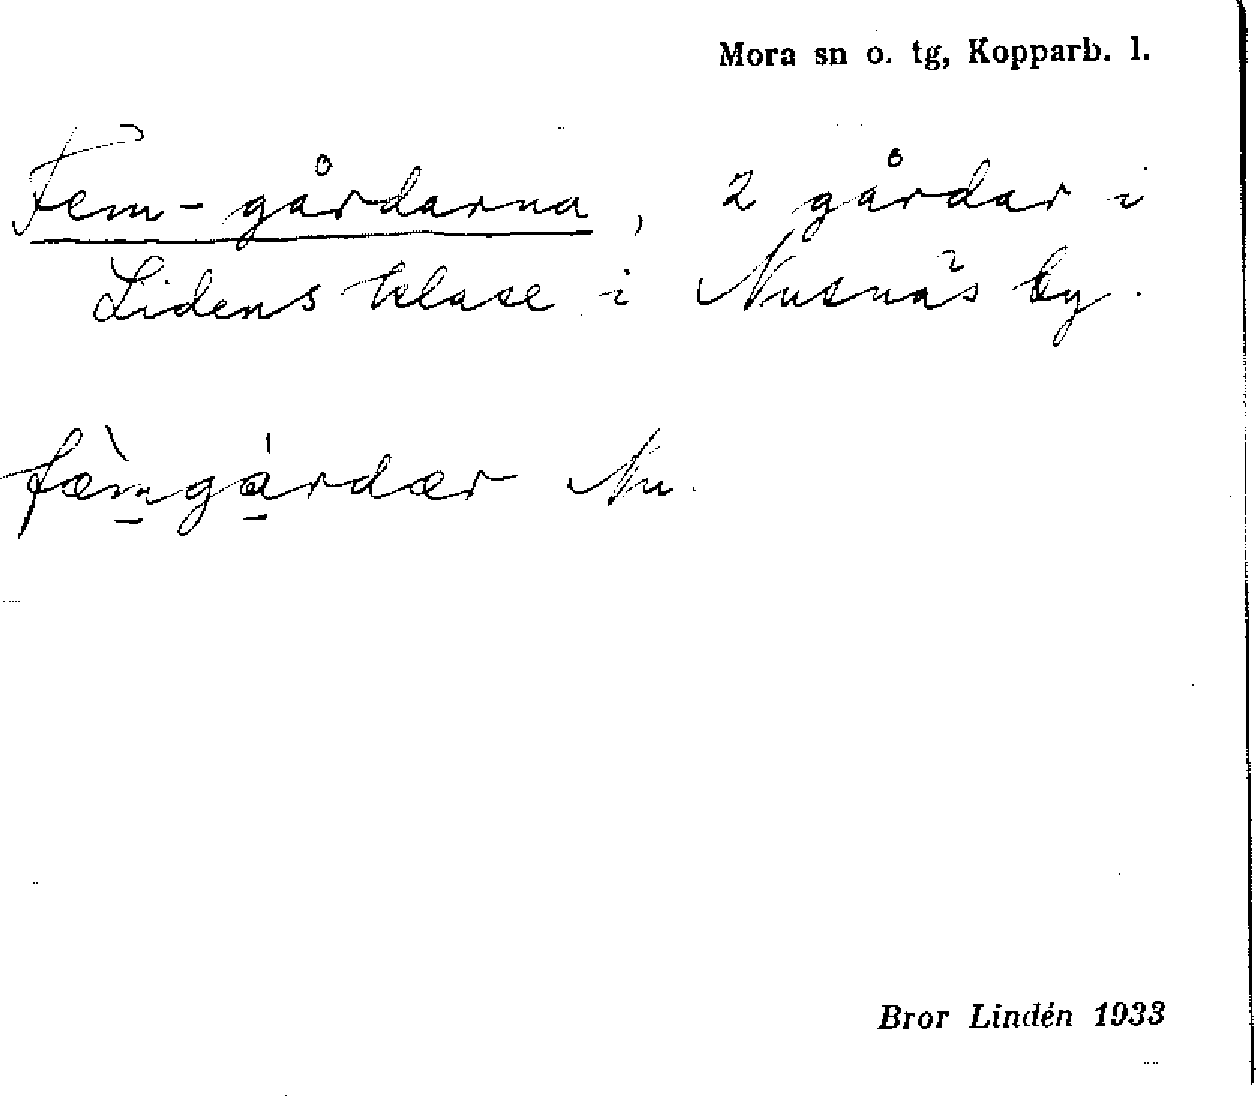 Mora sn o. tg, Kopparb. l.
Fem-gårdarna, 2 gårdar i
Lidens klase i Nusnäs by.
fæ̀m̱gá̱rdær Nu.
Bror Lindén 1933